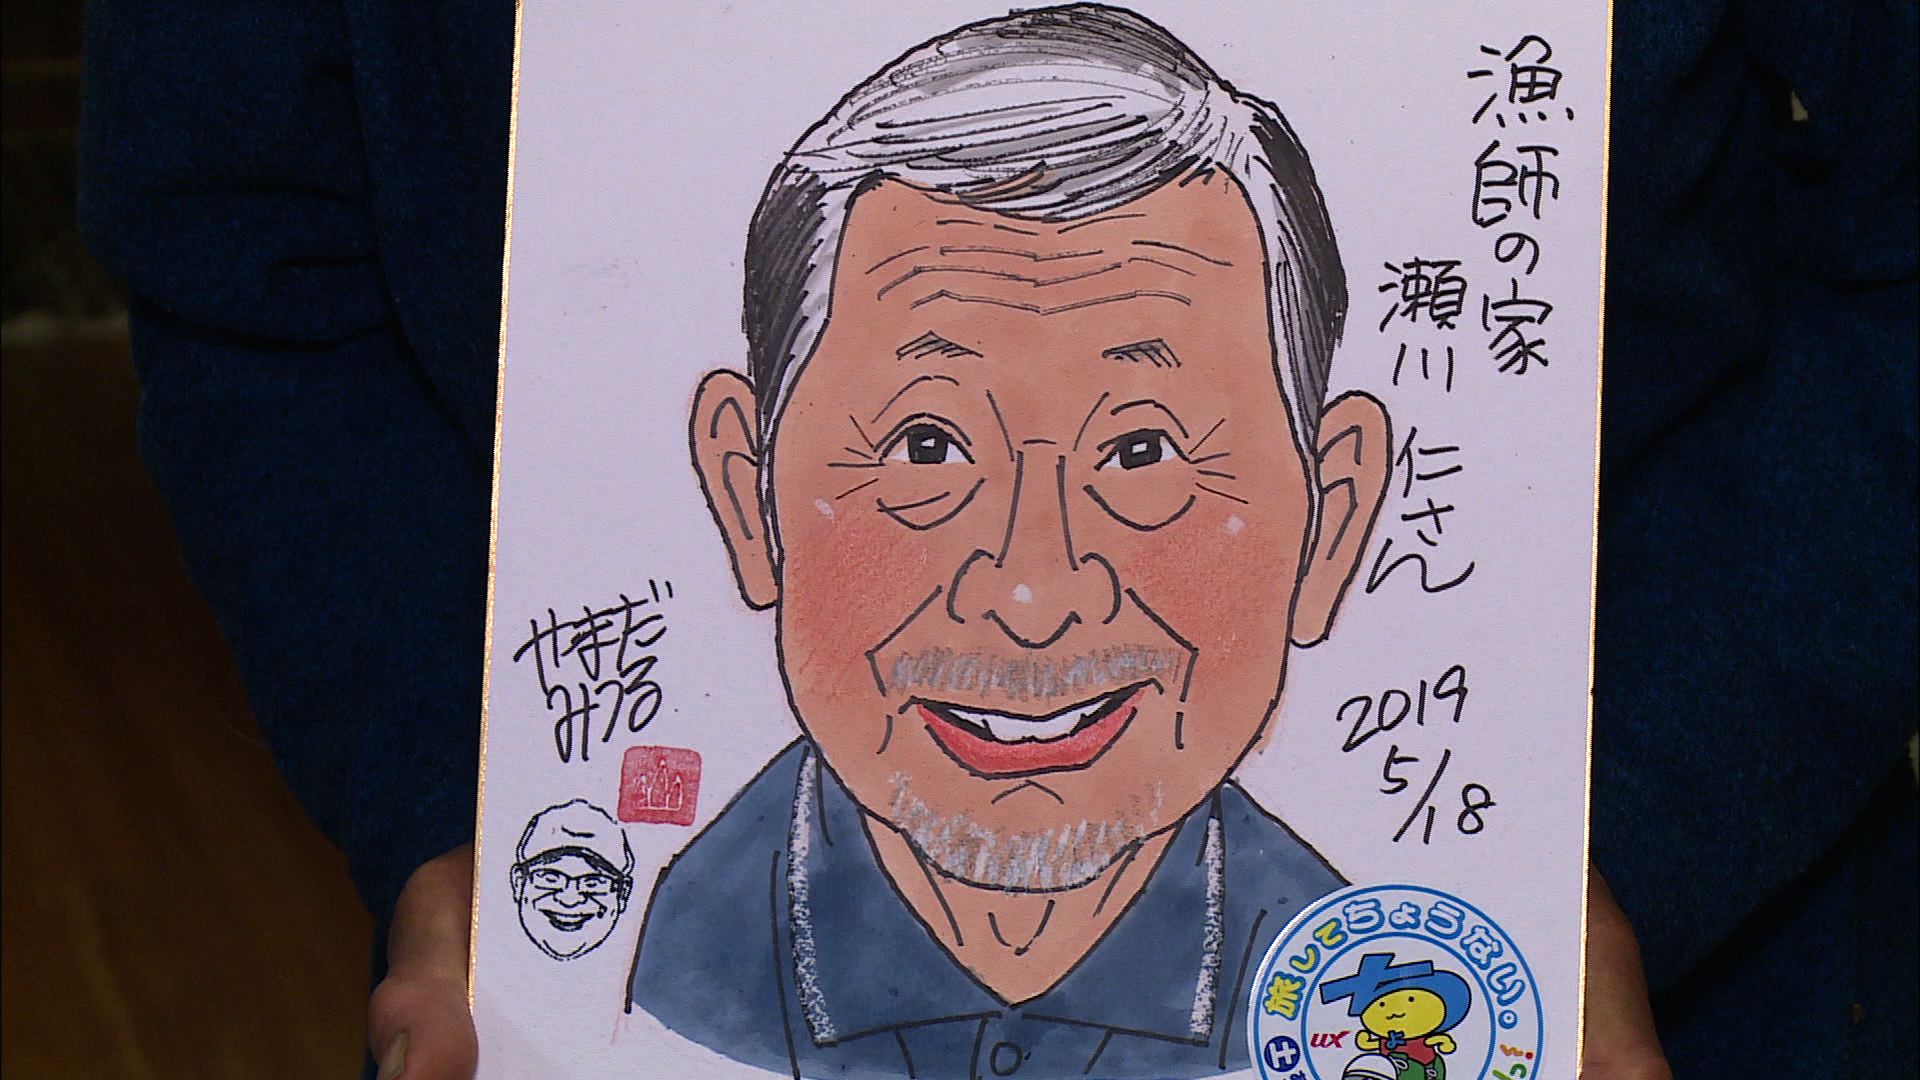 漁師の家
瀬川 仁さん
2019
5/18
やまだ
みつる
旅してちょうない。
UX